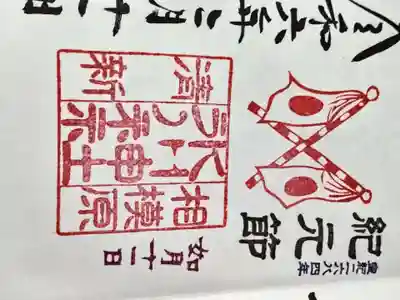 皇紀二六八四年
紀元節
如月十一日
相模原
氷川神社
清新
令和六年二月十一日